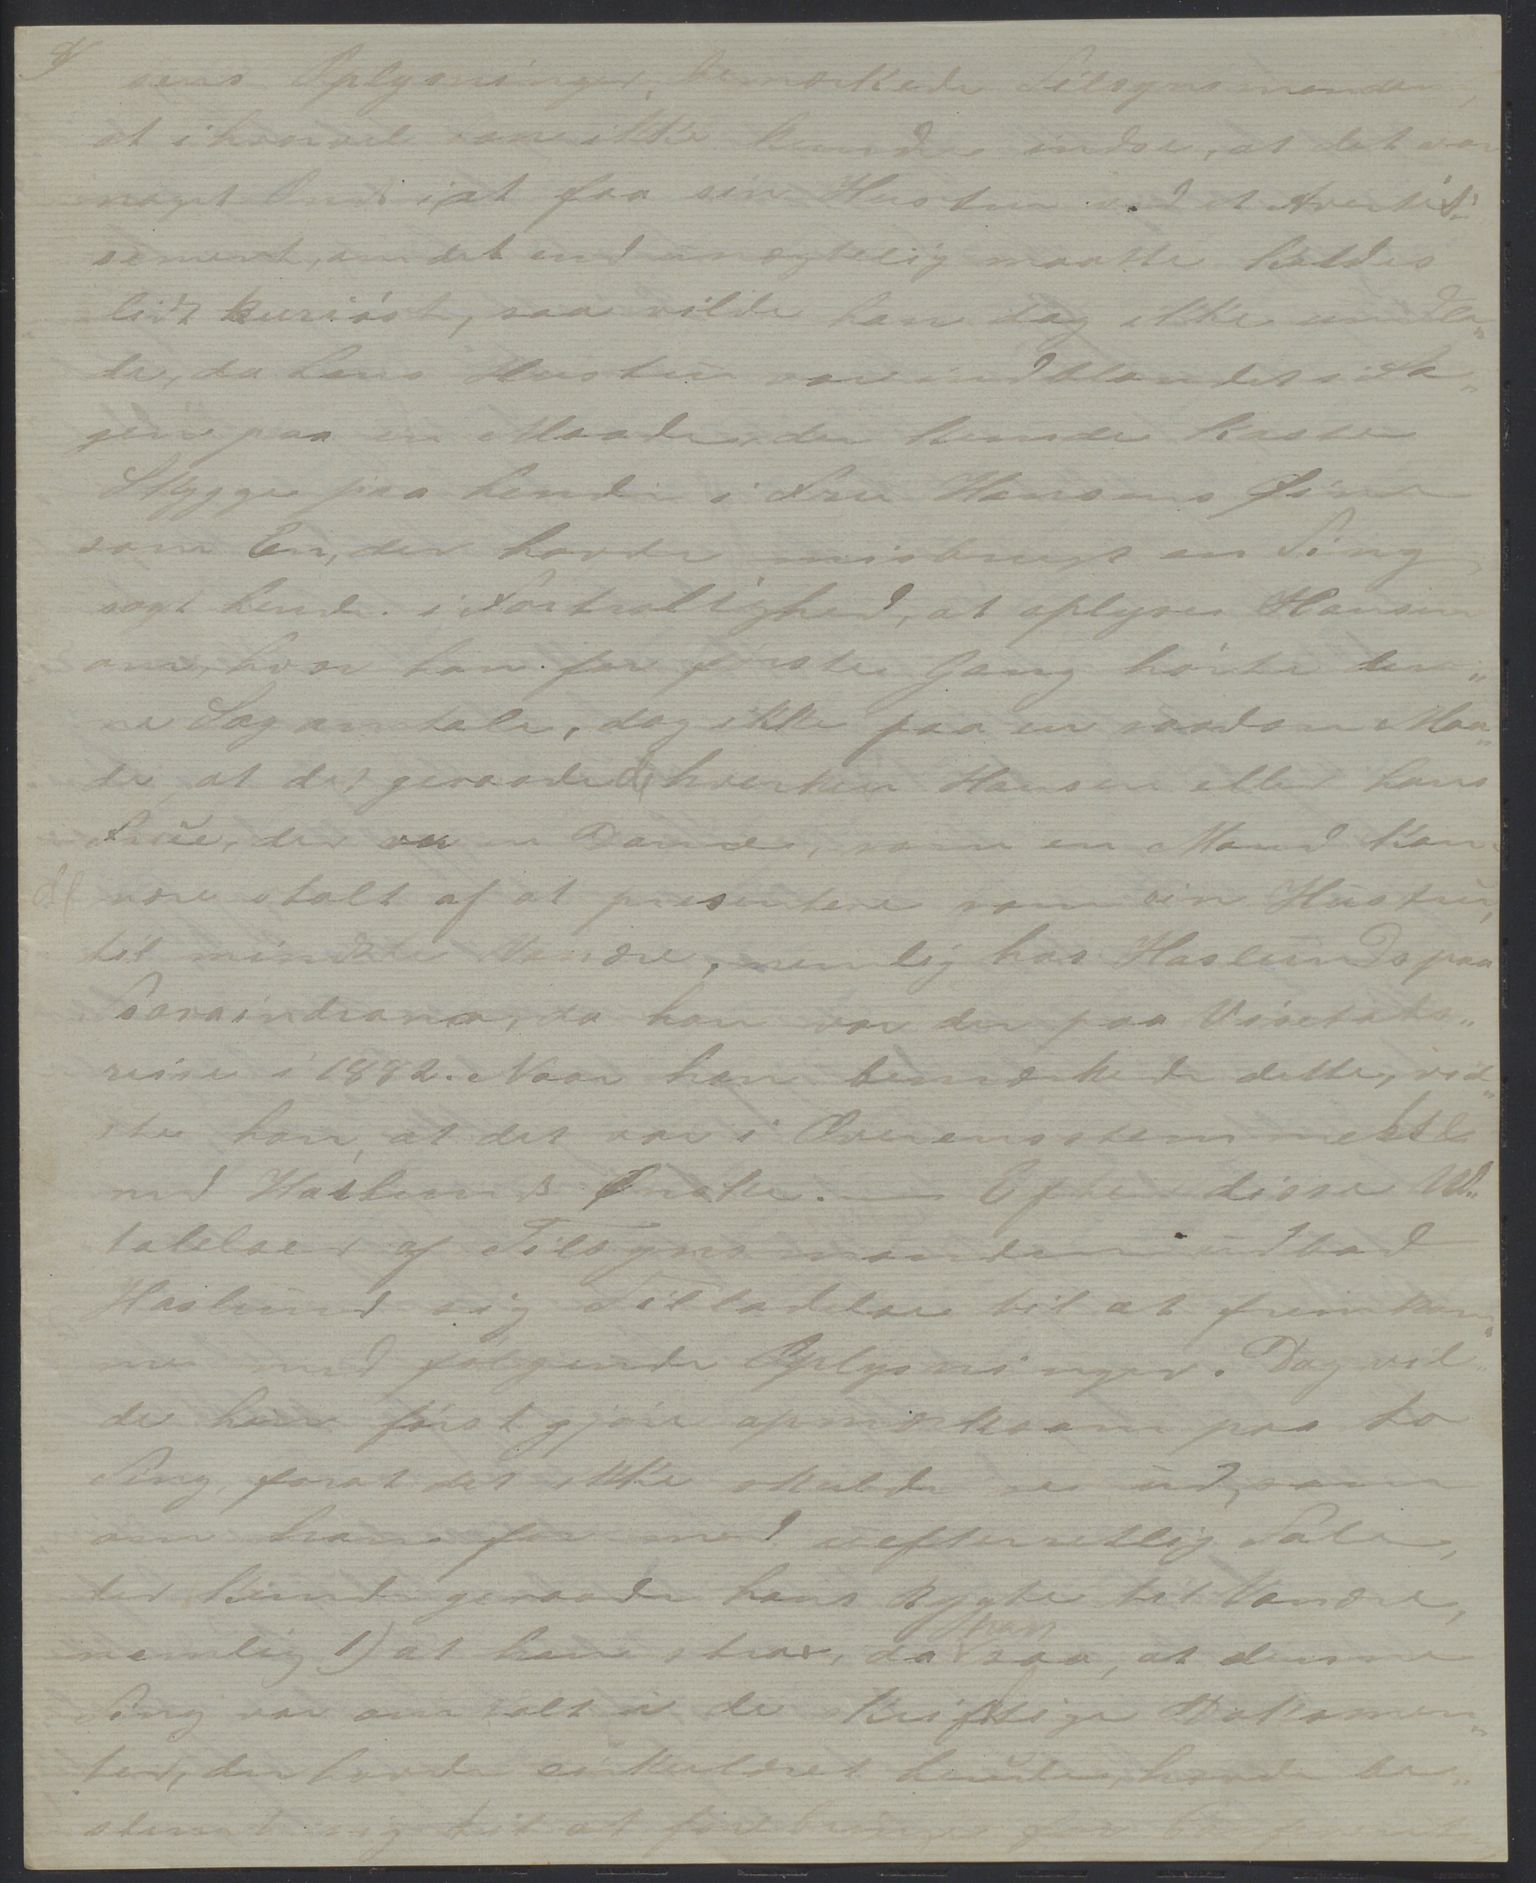 sens Oplysninger, bemærkede Tilsynsmanden,
at ihvorvel han ikke kunde indse, at det var
noget Ondt i at faa sin Hustru ved et Averti¬
sement, om det end unægtelig maatte kaldes
lidt kuriøst, saa vilde han dog ikke undla„
de, da hans Hustru var indblandet i Sa„
gen paa en Maade, der kunde kaste
Skygge paa hende i Fru Hansens Øine
som En, der havde misbrugt en Ting
sagt hende i Fortrolighed, at oplyse Hansen
om, hvor han for første Gang hørte den„
ne Sag omtale, dog ikke paa en saadan Maa„
de, at det geraadede hverken Hansen eller hans
Frue, der var en Dame, som en Mand kan
være stolt af at presentere som sin Hustru,
til mindste Vanære, nemlig hos Haslunds paa
Soraindrana, da han var der paa Visitats„
reise i 1882. Naar han bemærkede dette, vid„
ste han, at det var i Overensstemmelse
med Haslunds Ønske. — Efter disse Ud„
talelser af Tilsynsmanden udbad
Haslund sig Tilladelse til at fremkom„
me med følgende Oplysninger. Dog vil„
de han først gjøre opmærksom paa to
Ting, forat det ikke skulde se ud, som
om han for med uefterretlig Tale,
der kunde geraade hans Rygte til Vanære,
nemlig 1) at han strax, da han saa, at denne
Ting var omtalt i de skriftlige Dokumen„
ter, der havde cirkuleret herude, havde be„
stemt sig til at frembringe for